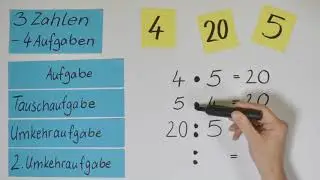 3 Zahlen
- 4 Aufgaben
4 20 5
Aufgabe
4 • 5 = 20
Tauschaufgabe
5 • 4 = 20
Umkehraufgabe
20 : 5
2. Umkehraufgabe
: =